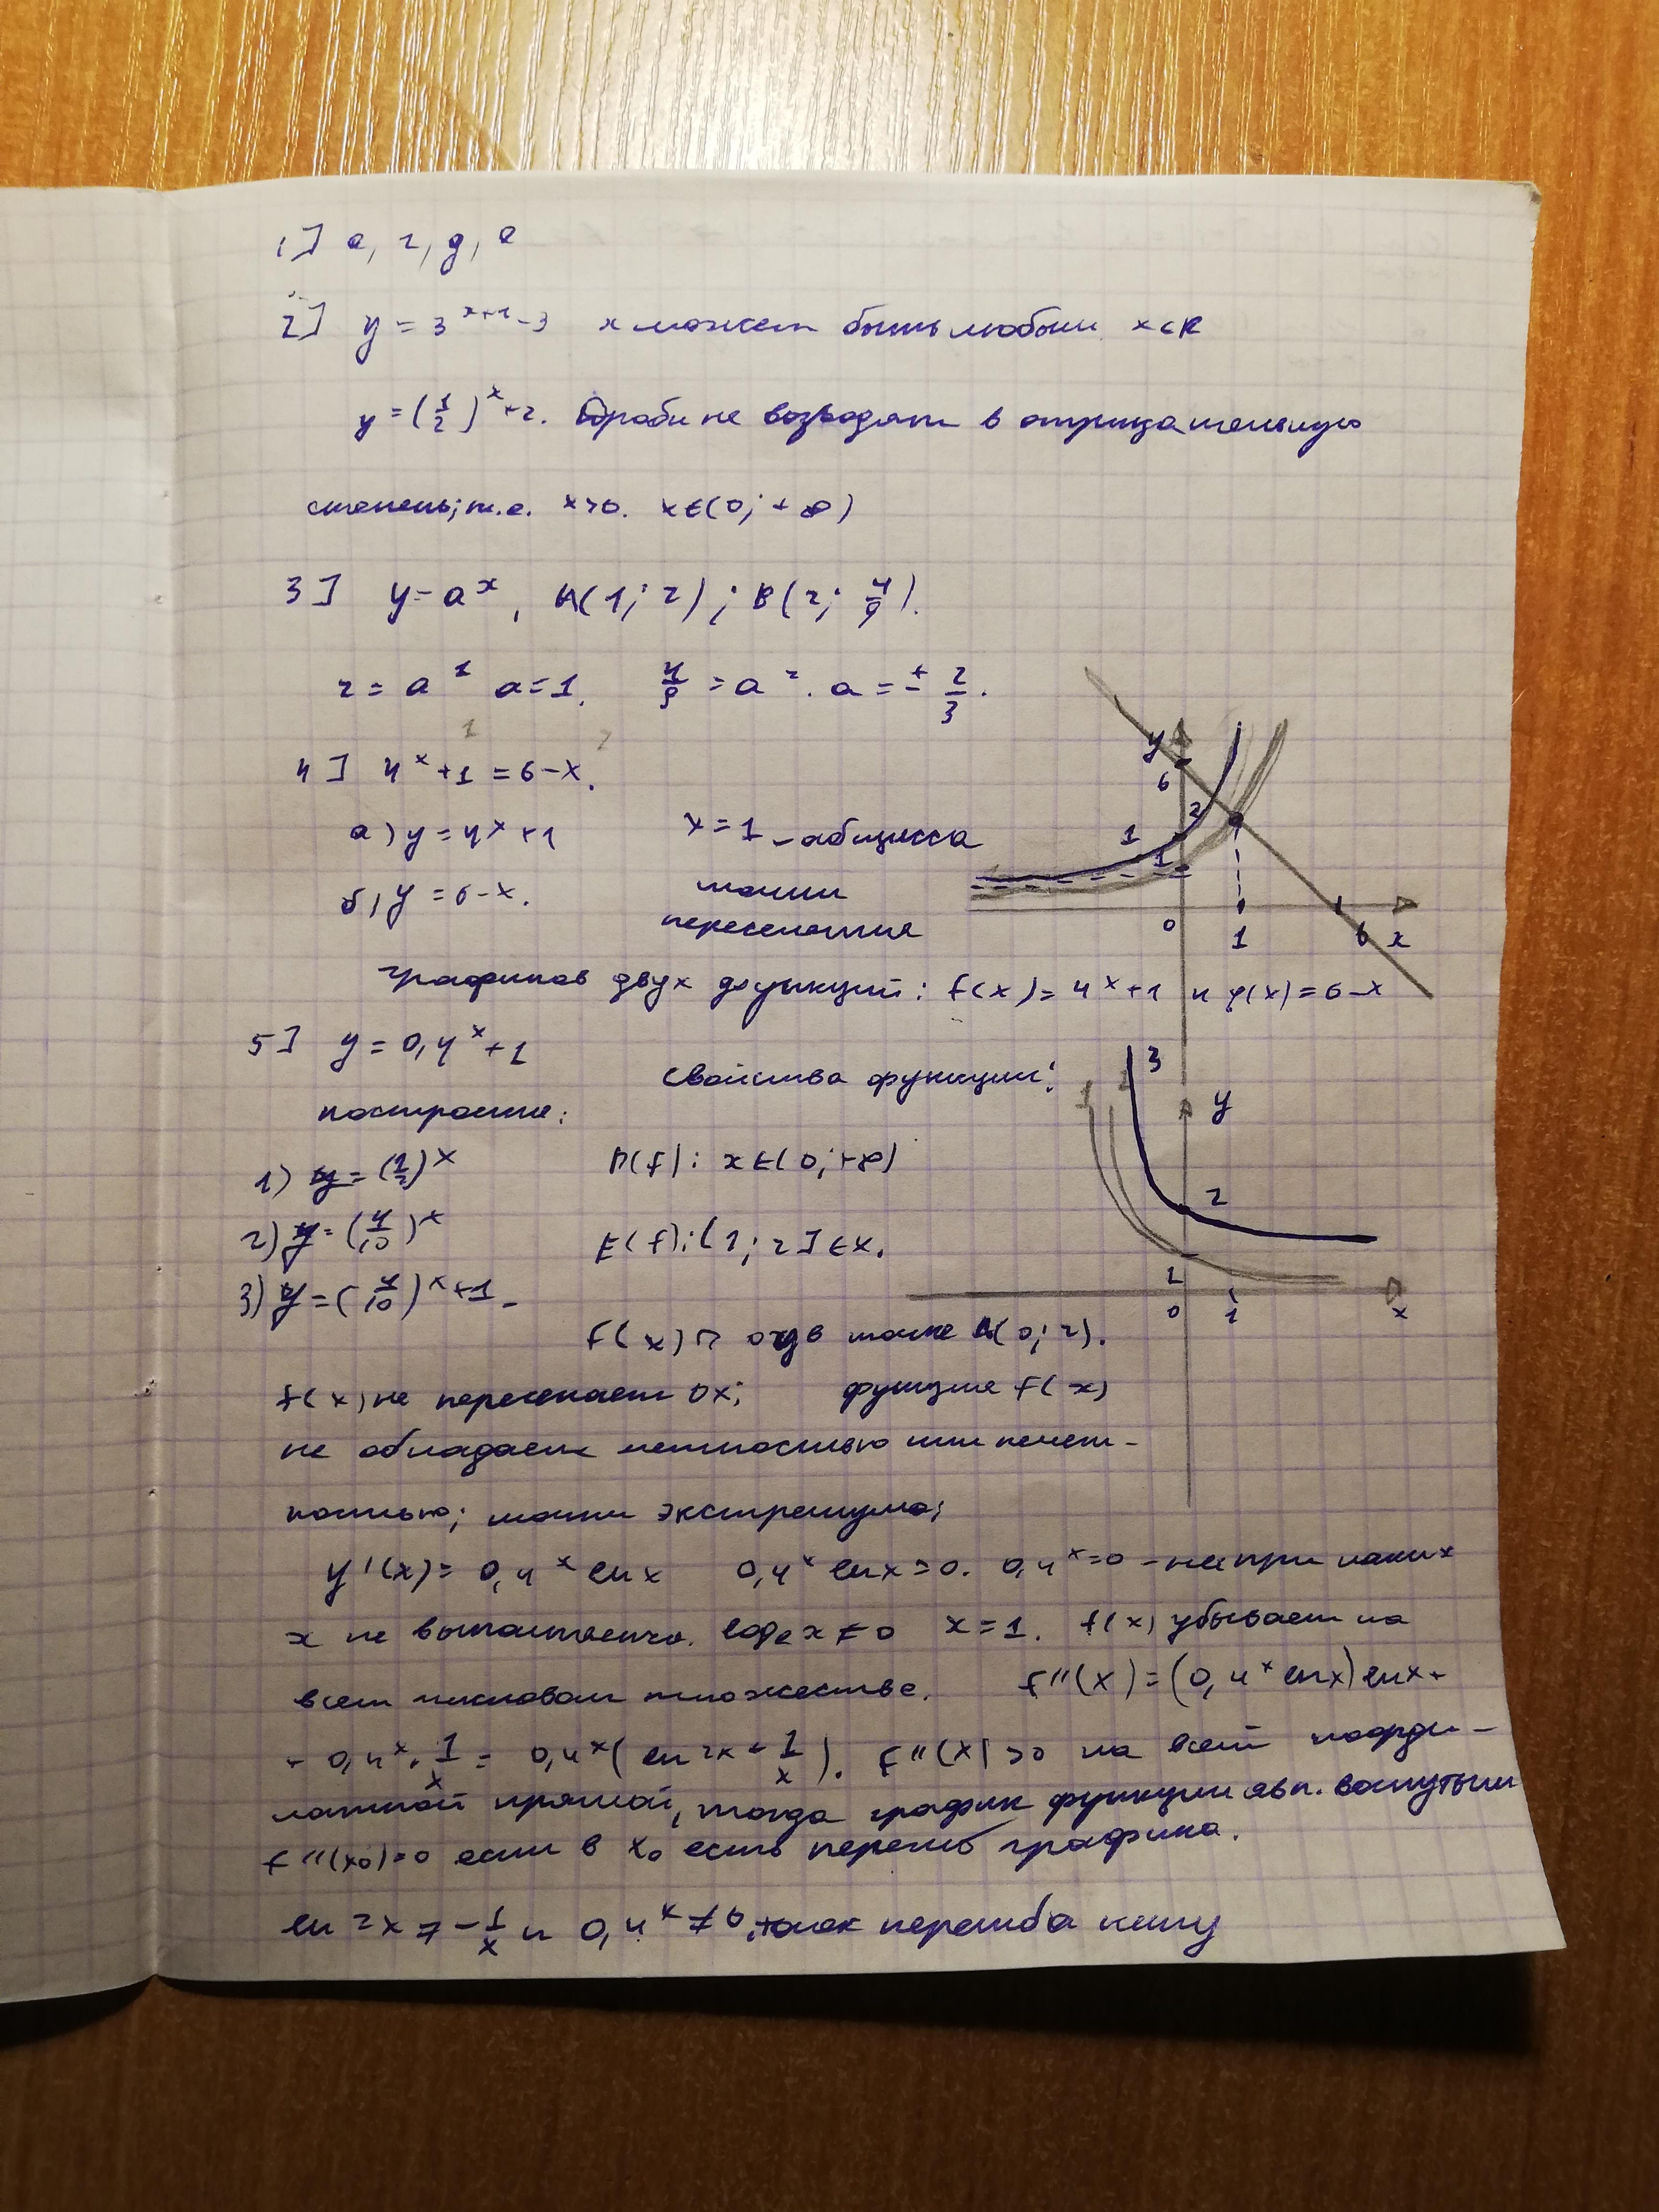 1] а, г, д, е
2] y = 3^(x+1) - 3 x может быть любым x ∈ R
y = (1/2)^x + 2. Дроби не возводят в отрицательную
степень; т.е. x>0. x∈(0; +∞)
3] y = a^x, A(1; 2); B(2; 4/9).
2 = a^1 a = 1. 4/9 = a^2. a = ± 2/3.
4] 4^x + 1 = 6 - x.
а) y = 4^x + 1
б) y = 6 - x.
x = 1 - абцисса
точки
пересечения
графиков двух функций: f(x) = 4^x + 1 и g(x) = 6 - x
y
6
2
1
1
0
1
6
x
5] y = 0,4^x + 1
построение:
1) y = (1/2)^x
2) y = (4/10)^x
3) y = (4/10)^x + 1
Свойства функции:
D(f): x∈(0; +∞)
E(f): (1; 2] ∈ x.
3
y
2
1
0
1
x
f(x) ∩ oy в точке A(0; 2).
f(x) не пересекает ox; функция f(x)
не обладает четностью или нечет-
ностью; точки экстремума;
y'(x) = 0,4^x ln x 0,4^x ln x = 0. 0,4^x = 0 - ни при каких
x не выполнено. log_e x ≠ 0 x = 1. f(x) убывает на
всем числовом множестве. f''(x) = (0,4^x ln x) ln x +
+ 0,4^x · 1/x = 0,4^x (ln 2x + 1/x). f''(x) > 0 на всей коорди-
натной прямой, тогда график функции явл. вогнутым
f''(x₀) = 0 если в x₀ есть перегиб графика.
ln 2x ≠ - 1/x и 0,4^x ≠ 0, точек перегиба нету